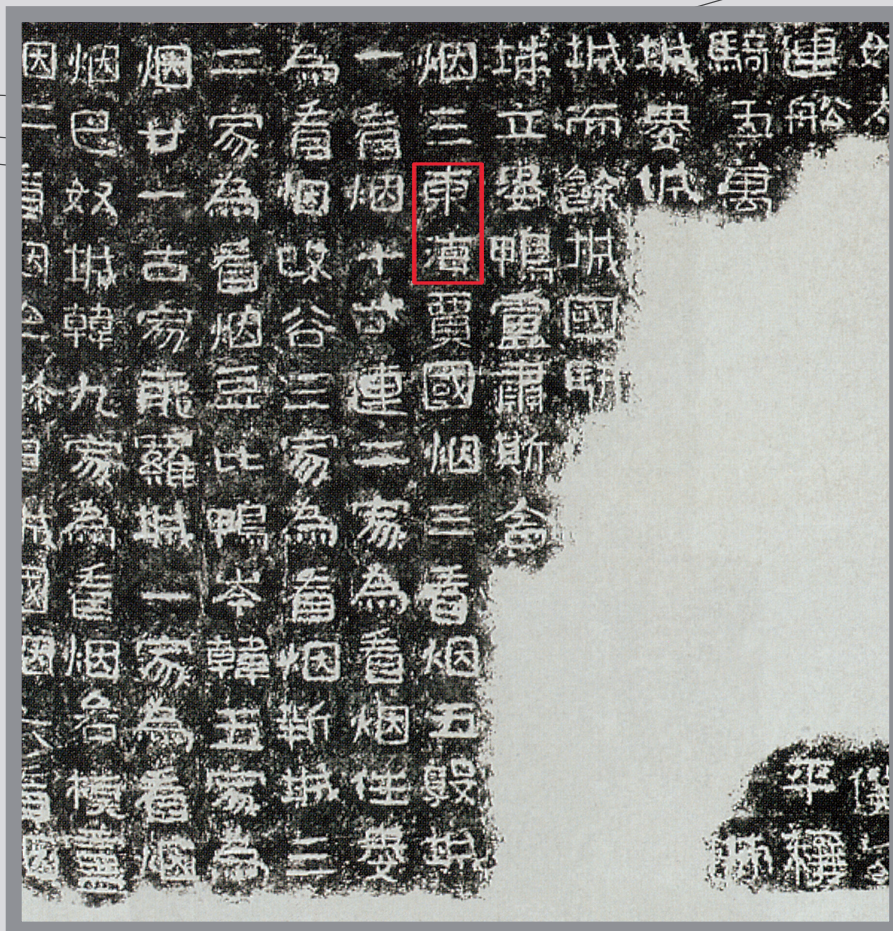 連船平穰
騎五寓
城婁城
城而餘城國
立婁鴨盧肅斯舍
烟三東海賈國烟三看烟五敦城
一看烟十訾連二家為看烟住婁
為看烟改谷三家為看烟新城三
二家為看烟豆比鴨岑韓五家為
烟廿一古家能羅城一家為看烟
烟巴奴城韓九家為看烟各模盧